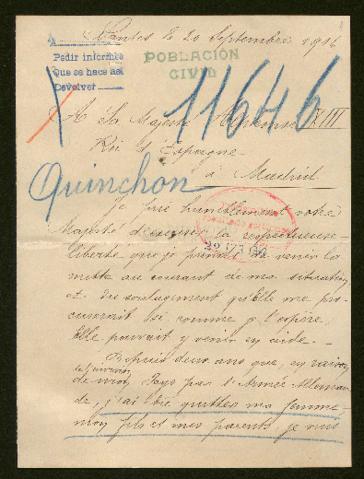 Nantes le 20 Septembre 1916
Pedir informes
Que se hace así
Devolver
POBLACIÓN
CIVIL
11646
A Sa Majesté Alphonse XIII
Roi d'Espagne
à Madrid
Quinchon
Je prie humblement votre
Majesté d'excuser la respectueuse
liberté que je prends de venir la
mettre au courant de ma situation
et du soulagement qu'Elle me pro-
curerait si, comme je l'espère
Elle pouvait y venir en aide.
Depuis deux ans que, en raison
de l'invasion
de mon Pays par l'Armée Alleman-
de, j'ai dû quitter ma femme
mon fils et mes parents, je suis